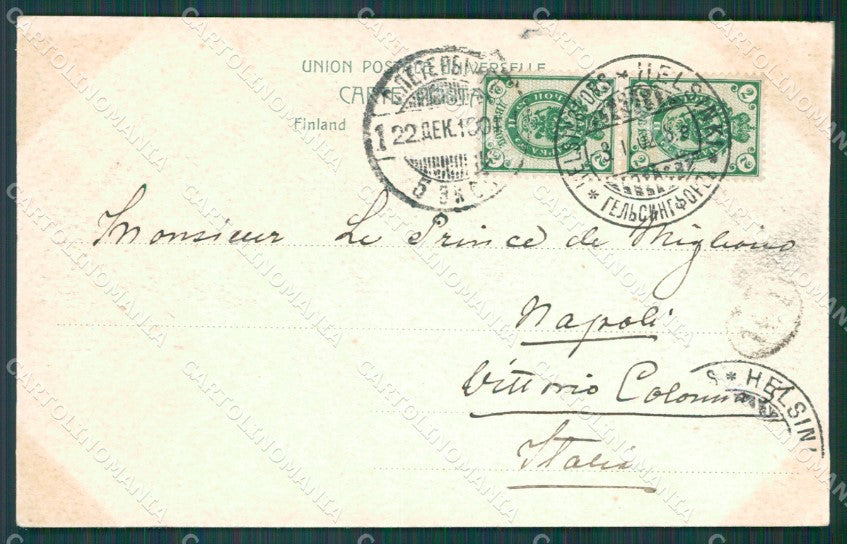 UNION POSTALE UNIVERSELLE
CARTE POSTALE
Finland
С. ПЕТЕРБУРГ
1
22.ДЕК.1901
5 ЭКСП.
HELSINGFORS * HELSINKI
ГЕЛЬСИНГФОРСЪ
2 2
2 2
Monsieur Le Prince de Migliano
Napoli
Vittorio Colonna
Italia
S * HELSIN
CARTOLINOMANIA